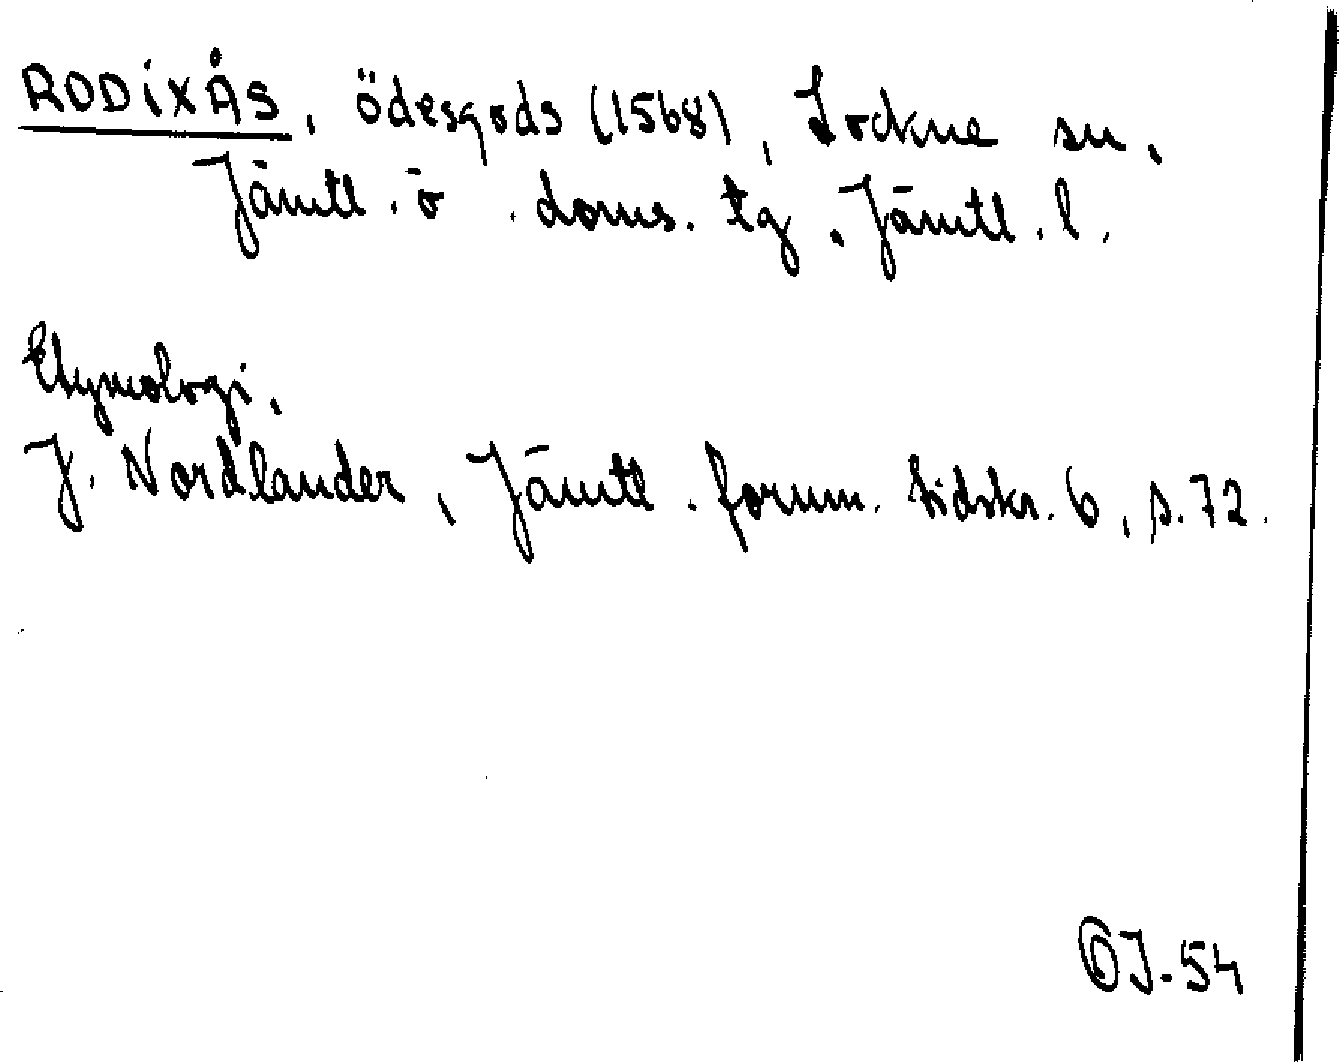 RODIXÅS, ödesgods (1568), Lockne sn,
Jämtl. ö. doms. tg. Jämtl. l.
Etymologi.
J. Nordlander, Jämtl. fornm. tidskr. 6, s. 72.
OJ-54